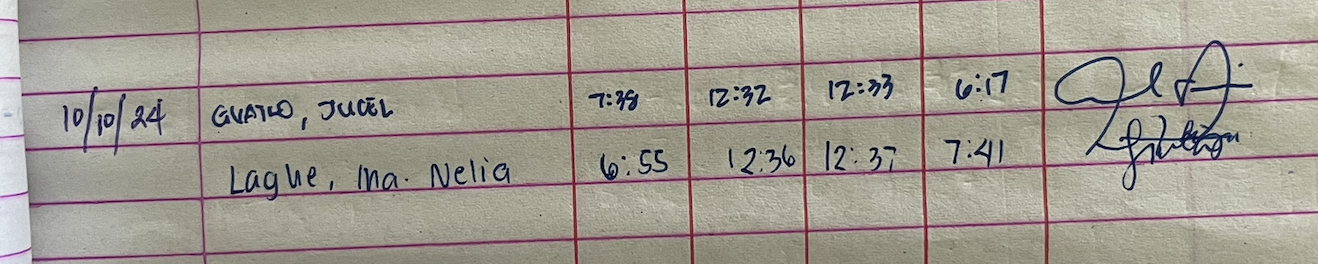 10/10/24 GUATNO, JUCEL 7:38 12:32 12:33 6:17
Laghe, Ma. Nelia 6:55 12:36 12:37 7:41